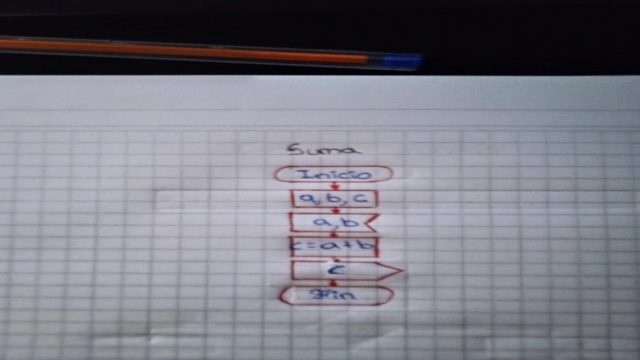 Suma
Inicio
a, b, c
a, b
c = a + b
c
Fin